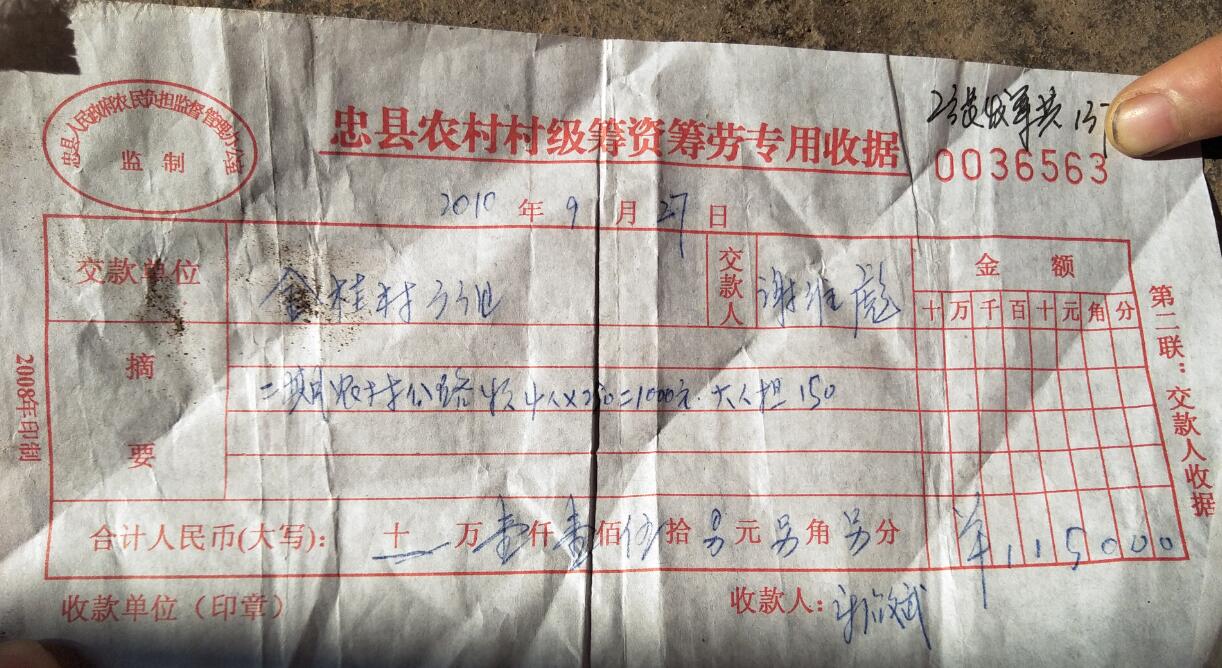 忠县人民政府农民负担监督管理办公室
监制
忠县农村村级筹资筹劳专用收据
0036563
2010年9月27日
交款单位 金桂村 组 交款人 谢 彪 金额
十万千百十元角分
摘要
二期农村公路收4人×250=1000元. 大人担150
合计人民币(大写): 十万壹仟壹佰伍拾另元另角另分 ¥115000
收款单位(印章) 收款人:
第二联:交款人收据
2008年印制